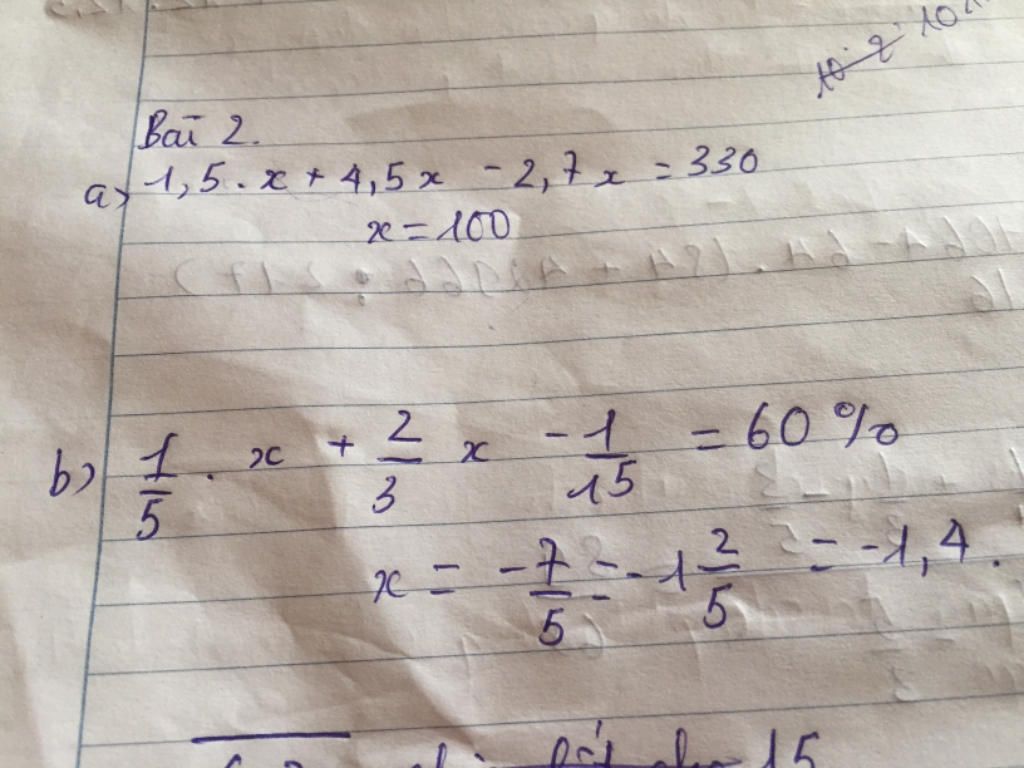 Bài 2.
a) 1,5 . x + 4,5x - 2,7x = 330
x = 100
b) 1/5 . x + 2/3 x - 1/15 = 60 %
x = -7/5 = -1 2/5 = -1,4.
15